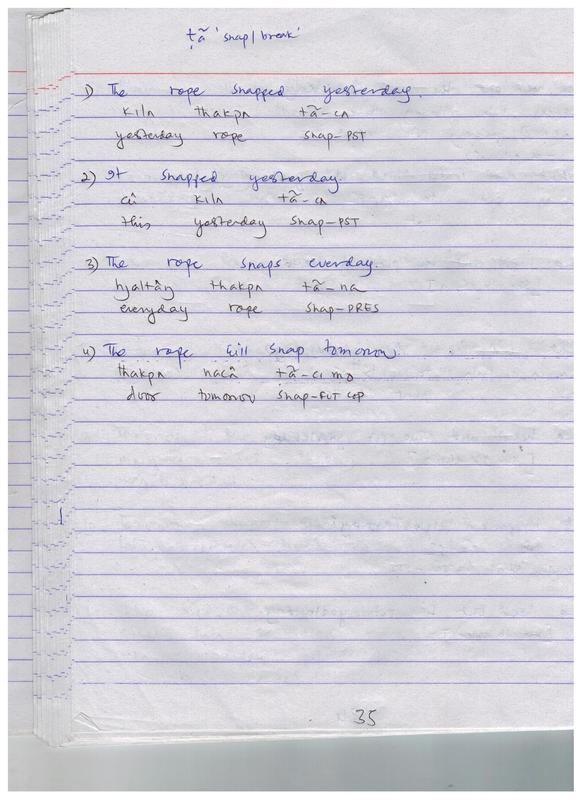 ṭã 'snap/break'
1) The rope snapped yesterday.
kılʌ thakpʌ tã-cʌ
yesterday rope snap-PST
2) It snapped yesterday.
cû kılʌ tã-cʌ
this yesterday snap-PST
3) The rope snaps everday.
hjaltâŋ thakpʌ tã-na
everyday rope snap-PRES
4) The rope will snap tomorrow.
thakpʌ nacâ tã-cı mo
door tomorrow snap-FUT COP
35